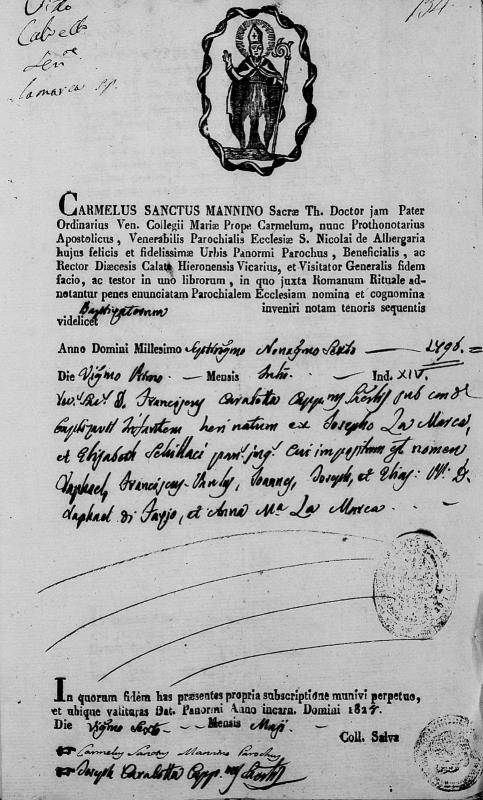 Vito
134
CARMELUS SANCTUS MANNINO Sacræ Th. Doctor jam Pater
Ordinarius Ven. Collegii Mariæ Prope Carmelum, nunc Prothonotarius
Apostolicus, Venerabilis Parochialis Ecclesiæ S. Nicolai de Albergaria
hujus felicis et fidelissimæ Urbis Panormi Parochus, Beneficialis, ac
Rector Diæcesis Calatæ Hieronensis Vicarius, et Visitator Generalis fidem
facio, ac testor in uno librorum, in quo juxta Romanum Rituale ad-
notantur penes enunciatam Parochialem Ecclesiam nomina et cognomina
Baptizatorum inveniri notam tenoris sequentis
videlicet
Anno Domini Millesimo Septing.mo Nonag.mo Sexto 1796.
Die Vig.mo Primo Mensis Ind. XIV.
D. Franciscus Carabotta sub cond.e
baptizavit Infantem heri natum ex Josepho La Marca,
et Elisabeth Schillaci jug. Cui impositum est nomen
Raphael, Franciscus Joannes, Joseph, et Elias: D.
Raphael di et Anna M.a La Marca.
In quorum fidem has præsentes propria subscriptione munivi perpetuo,
et ubique valituras Dat. Panormi Anno incarn. Domini 1827.
Die Vig.mo Sexto Mensis Maji
Coll. Salva
Carmelus Sanctus Mannino Parochus
Joseph Carabotta